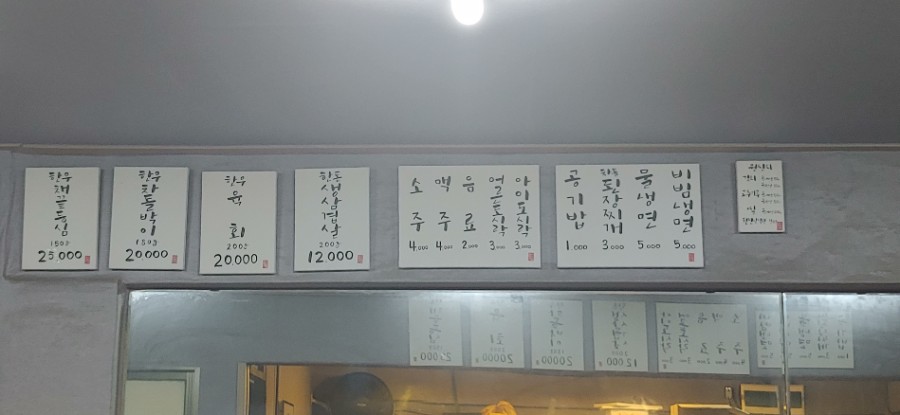 한우
채끝등심
150g
25.000
한우
차돌박이
150g
20.000
한우
육회
200g
20.000
한돈
생삼겹살
200g
12.000
소주
4.000
맥주
4.000
음료
2.000
어른도시락
3.000
아이도시락
3.000
공기밥
1.000
된장찌개
3.000
물냉면
5.000
비빔냉면
5.000
원산지
쌀